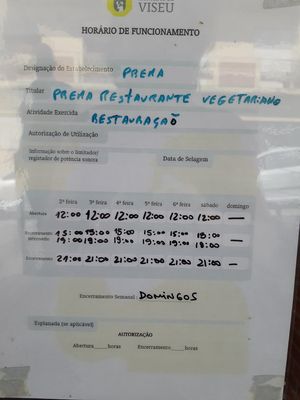 VISEU
HORÁRIO DE FUNCIONAMENTO
Designação do Estabelecimento PREMA
Titular PREMA RESTAURANTE VEGETARIANO
Atividade Exercida RESTAURAÇÃO
Autorização de Utilização
Informação sobre o limitador/
registador de potência sonora
Data de Selagem
2ª feira 3ª feira 4ª feira 5ª feira 6ª feira sábado domingo
Abertura 12:00 12:00 12:00 12:00 12:00 12:00 —
Encerramento 15:00 15:00 15:00 15:00 15:00 —
intermédio 19:00 19:00 19:00 19:00 19:00
Encerramento 21:00 21:00 21:00 21:00 21:00 21:00 —
Encerramento Semanal: DOMINGOS
Esplanada (se aplicável)
AUTORIZAÇÃO
Abertura_____horas Encerramento_____horas